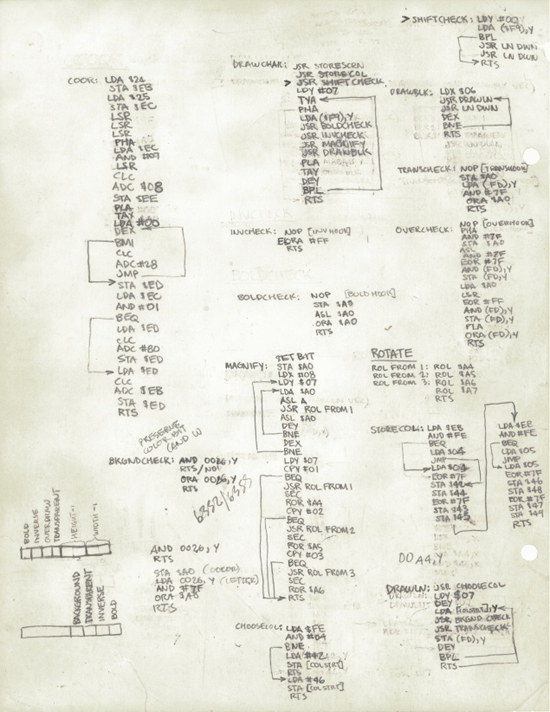 > SHIFTCHECK: LDY #00
LDA ($F9),Y
BPL
JSR LN DWN
JSR LN DWN
RTS
COOR: LDA $24
STA $EB
LDA $25
STA $EC
LSR
LSR
LSR
PHA
LDA $EC
AND #07
LSR
CLC
ADC $08
STA $EE
PLA
TAX
LDA #00
DEX
BMI
CLC
ADC #28
JMP
STA $ED
LDA $EC
AND #01
BEQ
LDA $ED
CLC
ADC #80
STA $ED
LDA $ED
CLC
ADC $EB
STA $ED
RTS
DRAWCHAR: JSR STORESCRN
JSR STORECOL
> JSR SHIFTCHECK
LDY #07
TYA
PHA
LDA ($F9),Y
JSR BOLDCHECK
JSR INVCHECK
JSR MAGNIFY
JSR DRAWBLK
PLA
TAY
DEY
BPL
RTS
DRAWBLK: LDX $06
JSR DRAWLN
JSR LN DWN
DEX
BNE
RTS
TRANSCHECK: NOP [TRANSHOOK]
STA $A0
LDA (FD),Y
AND #7F
ORA $A0
RTS
INVCHECK: NOP [INVHOOK]
EORA #FF
RTS
OVERCHECK: NOP [OVERHOOK]
PHA
AND #7F
STA $A0
ASL
AND #7F
EOR #7F
AND (FD),Y
STA (FD),Y
LDA $A0
LSR
EOR #FF
AND (FD),Y
STA (FD),Y
PLA
ORA (FD),Y
RTS
BOLDCHECK: NOP [BOLDHOOK]
STA $A0
ASL $A0
ORA $A0
RTS
MAGNIFY:
STA $A0
LDX #08
LDY $07
LDA $A0
ASL A
JSR ROL FROM 1
ASL $A0
DEY
BNE
DEX
BNE
LDY $07
CPY #01
BEQ
JSR ROL FROM 1
SEC
ROR $A4
CPY #02
BEQ
JSR ROL FROM 2
SEC
ROR $A5
CPY #03
BEQ
JSR ROL FROM 3
SEC
ROR $A6
RTS
ROTATE
ROL FROM 1: ROL $A4
ROL FROM 2: ROL $A5
ROL FROM 3: ROL $A6
ROL $A7
RTS
STORECOL: LDA $EB
AND #FE
BEQ
LDA $04
JMP
LDA $04
EOR #7F
STA $44
STA $44
EOR #7F
STA $43
STA $45
LDA $EE
AND #FE
BEQ
LDA $05
JMP
LDA $05
EOR #7F
STA $46
STA $48
EOR #7F
STA $47
STA $49
RTS
PRESERVE
COLOR BIT
(AND W)
BKGNDCHECK: AND 0026,Y
RTS/NOP
ORA 0026,Y
RTS
AND 0026,Y
RTS
STA $A0 (COLOR)
LDA 0026,Y (LETTER)
AND #7F
ORA $A0
RTS
00A4,Y
BOLD
INVERSE
OVERDRAWN
TRANSPARENT
HEIGHT-1
WIDTH-1
BACKGROUND
TRANSPARENT
INVERSE
BOLD
DRAWLN: JSR CHOOSECOL
LDY $07
DEY
JSR BKGND CHECK
JSR TRANSCHECK
STA (FD),Y
BPL
RTS
CHOOSECOL: LDA $FE
AND #04
BNE
LDA #42
STA [COLSTRT]
RTS
LDA #46
STA [COLSTRT]
RTS